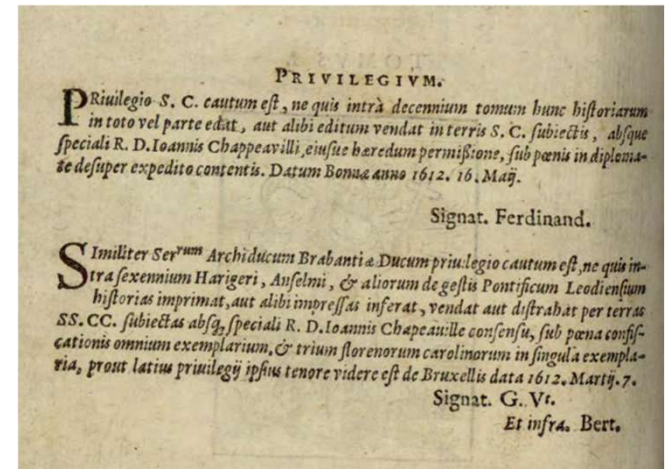 PRIVILEGIVM.
PRiuilegio S. C. cautum est, ne quis intrà decennium tomum hunc historiarum
in toto vel parte edat, aut alibi editum vendat in terris S. C. subiectis, absque
speciali R. D. Ioannis Chappeavilli, eiusue hæredum permißione, sub pœnis in diploma-
te desuper expedito contentis. Datum Bonnæ anno 1612. 16. Maij.
Signat. Ferdinand.
SImiliter Serrum Archiducum Brabantiæ Ducum priuilegio cautum est, ne quis in-
tra sexennium Harigeri, Anselmi, & aliorum de gestis Pontificum Leodiensium
historias imprimat, aut alibi impressas inferat, vendat aut distrahat per terras
SS. CC. subiectas absq; speciali R. D. Ioannis Chapeauille consensu, sub pœna confis-
cationis omnium exemplarium, & trium florenorum carolinorum in singula exempla-
ria, prout latius priuilegij ipsius tenore videre est de Bruxellis data 1612. Martij. 7.
Signat. G. Vt.
Et infra. Bert.